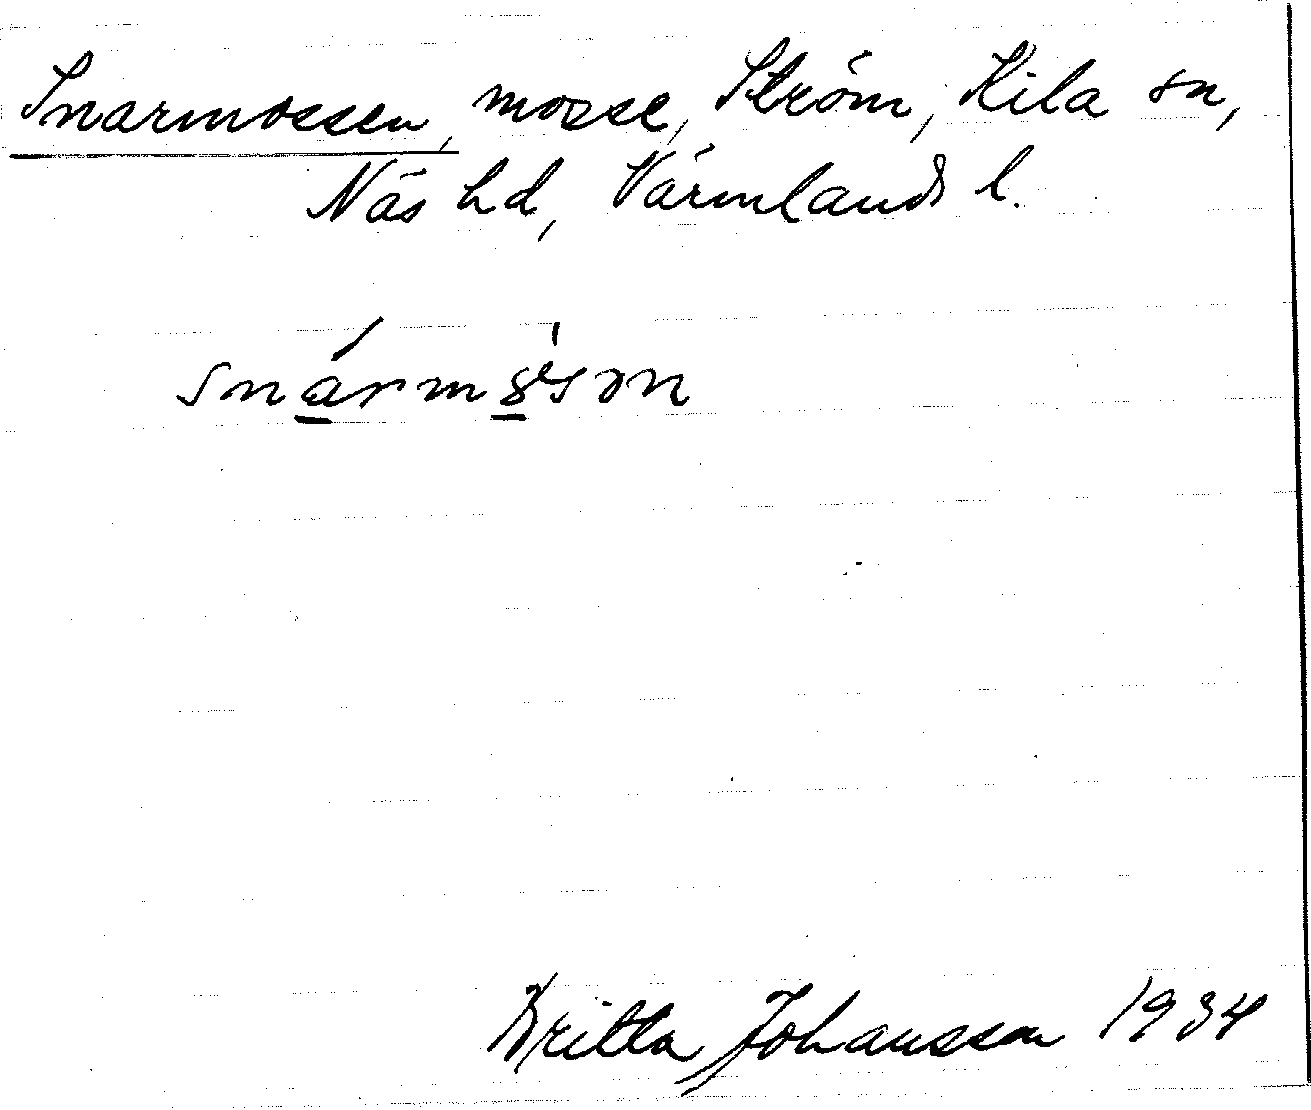 Snarmossen, mosse, Ström, Kila sn,
Näs hd, Värmlands l.
snármo̲sən
Britta Johansson 1934